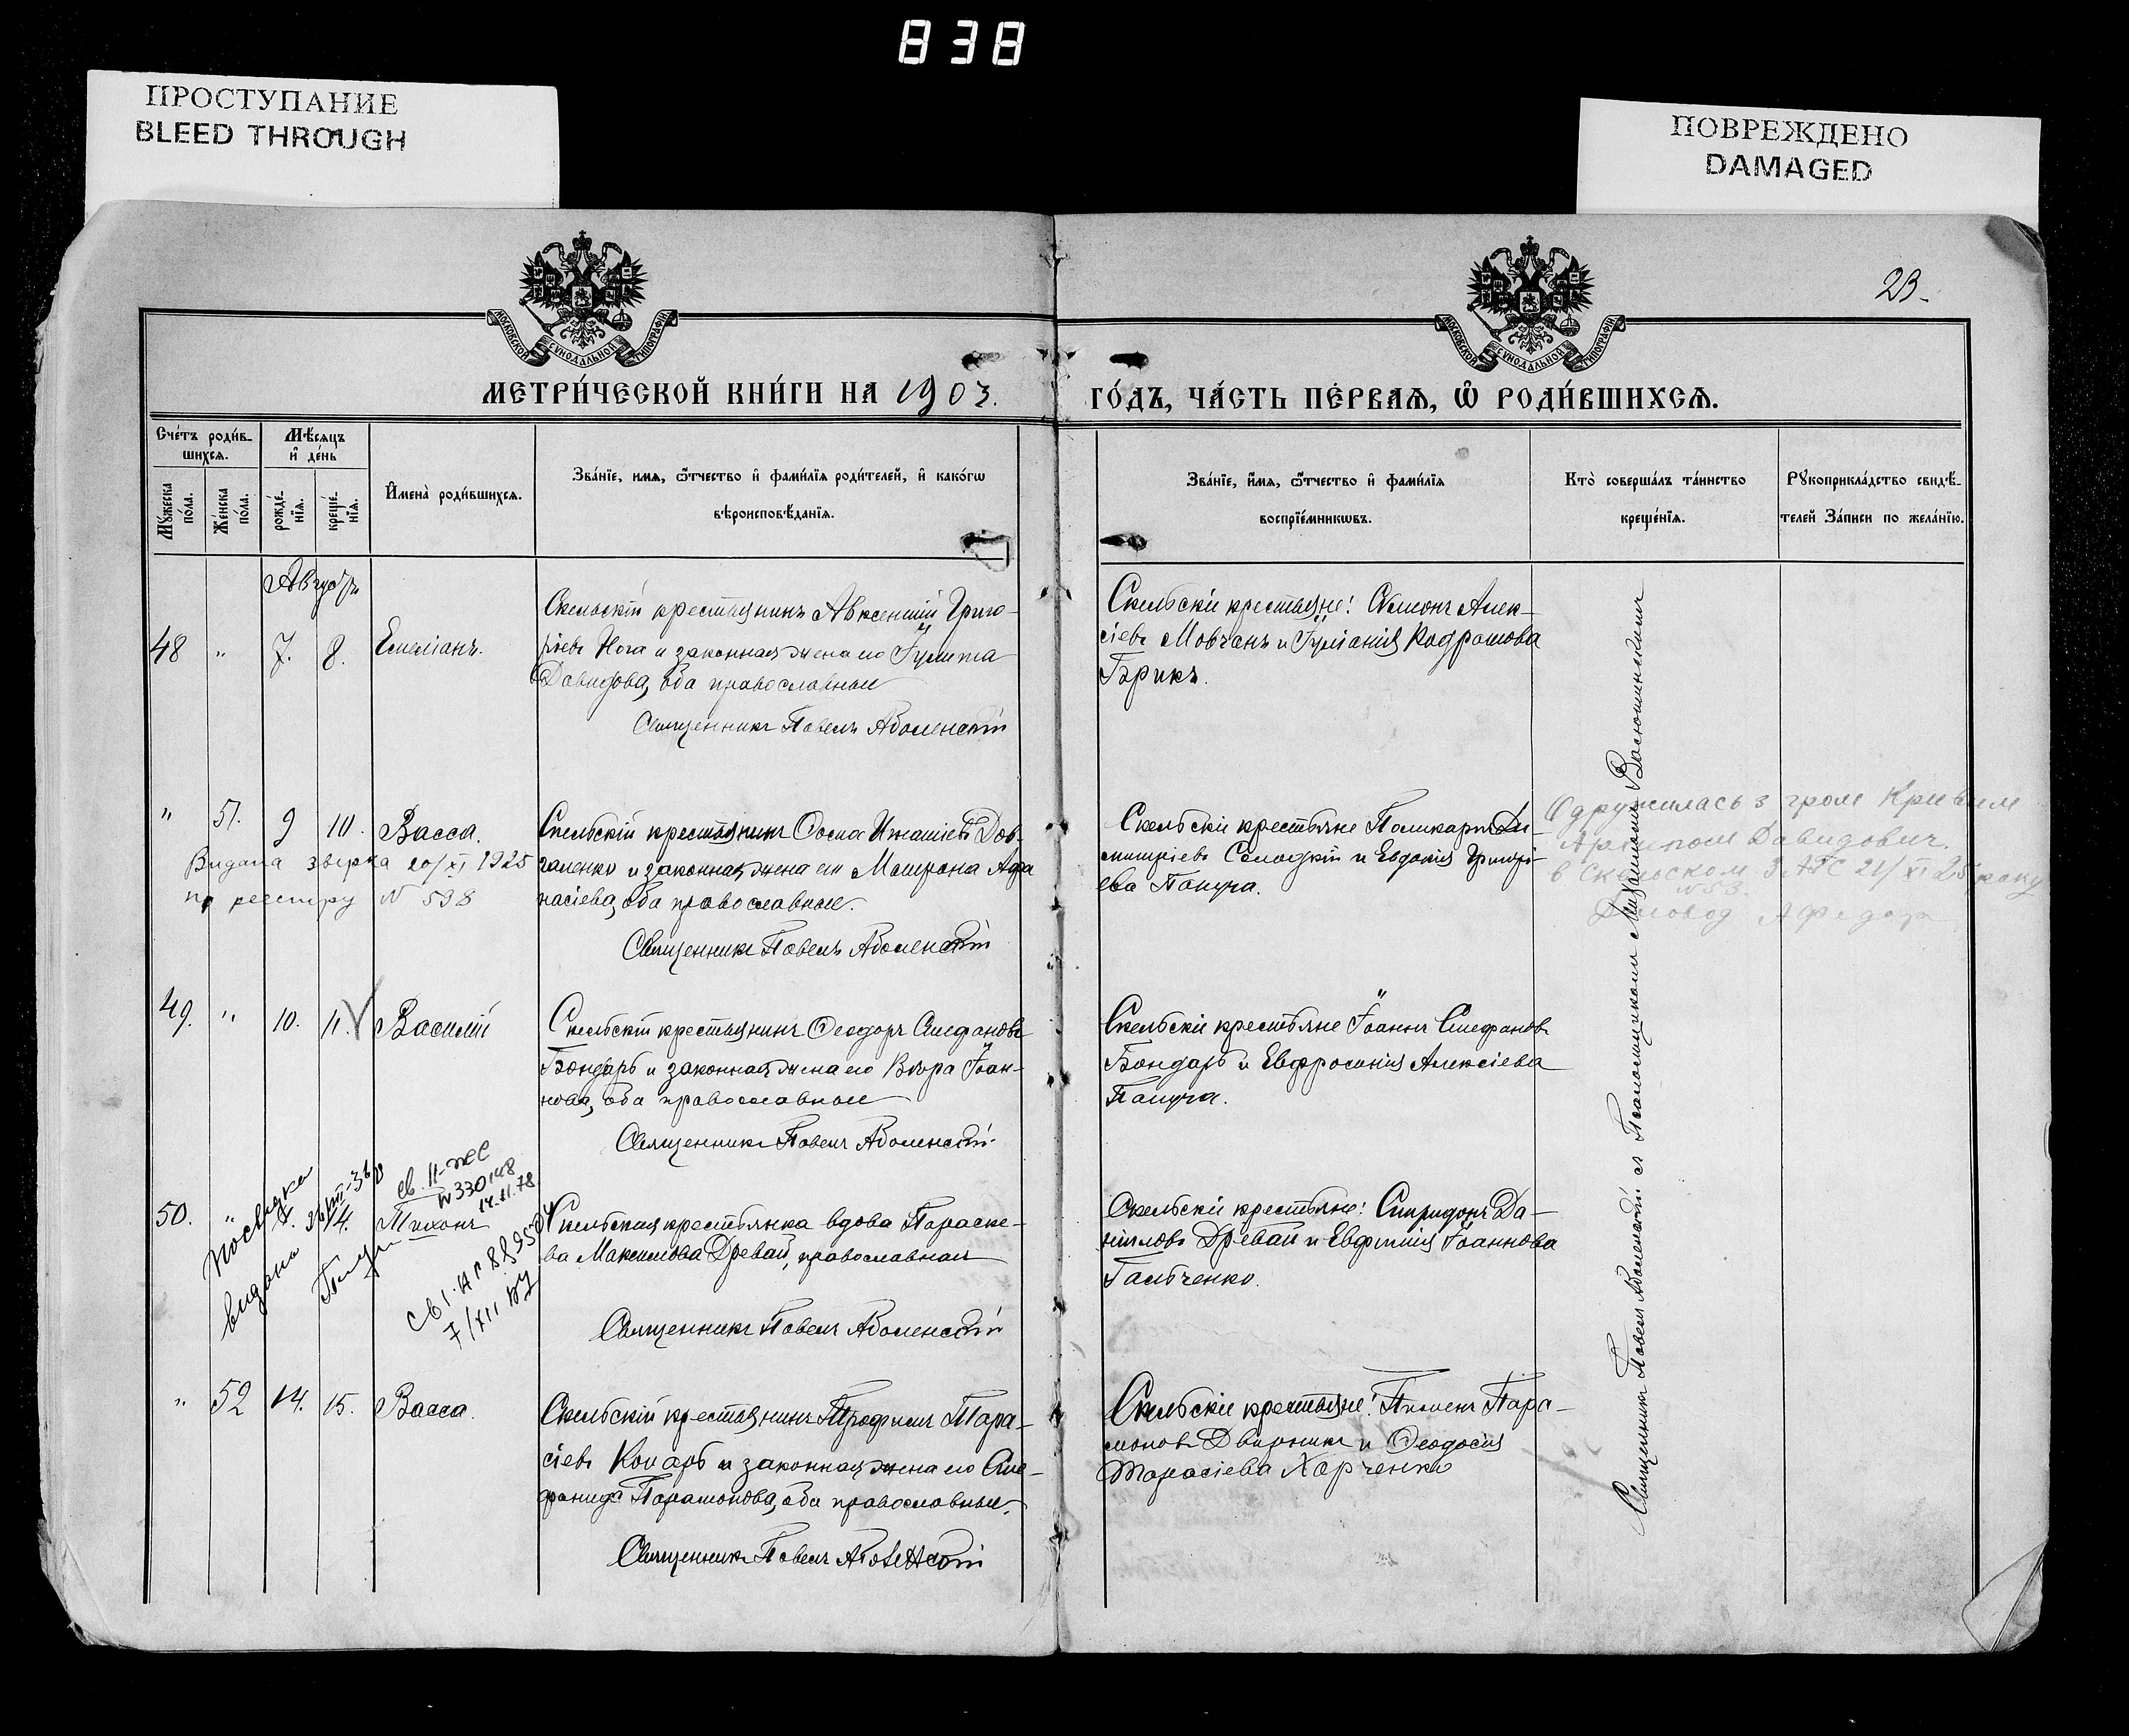 838
ПРОСТУПАНИЕ
BLEED THROUGH
ПОВРЕЖДЕНО
DAMAGED
23.
МОСКОВСКОЙ СѴНОДАЛЬНОЙ ТИПОГРАФІИ
МОСКОВСКОЙ СѴНОДАЛЬНОЙ ТИПОГРАФІИ
МЕТРИ́ЧЕСКОЙ КНИ́ГИ НА 1903.
ГО́ДЪ, ЧА́СТЬ ПЕ́РВАѦ, Ѡ҆ РОДИ́ВШИХСѦ.
Сче́тъ роди́в-
шихсѧ.
Мꙋ́жеска по́ла.
Же́нска по́ла.
Мѣ́сѧцъ
и҆ де́нь
рожде́-
нїѧ.
креще́-
нїѧ.
И҆мена̀ роди́вшихсѧ.
Зва́нїе, имѧ, ѻ҆́тчество и҆ фами́лїѧ роди́телей, и҆ како́гѡ
вѣроисповѣ́данїѧ.
Зва́нїе, и҆́мѧ, ѻ҆́тчество и҆ фами́лїѧ
воспрїе́мникѡвъ.
Кто̀ соверша́лъ та́инство
креще́нїѧ.
Рꙋкоприкла́дство свидѣ́-
телей За́писи по жела́нїю.
Августъ
48 " 7. 8. Емеліанъ.
Скельскій крестьянинъ Авксентій Григо-
рьевъ Нога и законная жена его Іулита
Давидова, оба православные
Священникъ Павелъ Аболенскій
Скельскіе крестьяне: Симонъ Алек-
сіевъ Мовчанъ и Іуліанія
Брикъ.
" 51. 9 10. Васса.
Видана 20/XI 1925
по реестру N 598
Скельскій крестьянинъ Ѳома Игнатіевъ Дов-
галенко и законная жена его Матрона Афа
насіева, оба православные.
Священникъ Павелъ Аболенскій
Скельскіе крестьяне Поликарпъ Ди-
митріевъ и Евдокія Григорі-
ева Папуча.
Одружилась з гром Кривим
Архипом Давидович.
в Скельском ЗАГС 21/XI 25 року
N 53.
Діловод
49. " 10. 11. Василій
Скельскій крестьянинъ Ѳеодоръ Стефановъ
Бондарь и законная жена его Вѣра Іоан-
нова, оба православные
Священникъ Павелъ Аболенскій
Скельскіе крестьяне Іоаннъ Стефановъ
Бондарь и Евфросинія Алексіева
Папуча.
50. " 14. Тихонъ
св. II-ЖС
N 330148
14.11.78
видана
7/XII
Скельская крестьянка вдова Параске-
ва Максимова Древаль, православная
Священникъ Павелъ Аболенскій
Скельскіе крестьяне: Спиридонъ Да-
ніиловъ Древаль и Евфимія Іоаннова
Гальченко.
" 52 14. 15. Васса.
Скельскій крестьянинъ Трофимъ Тара-
сіевъ Копарь и законная жена его Сте-
фанида Парамонова, оба православные.
Священникъ Павелъ Аболенскій
Скельскіе крестьяне: Пименъ Пара-
моновъ Дворникъ и Ѳеодосія
Тарасіева Харченко
Священникъ Павелъ Аболенскій съ Псаломщикомъ Михаиломъ